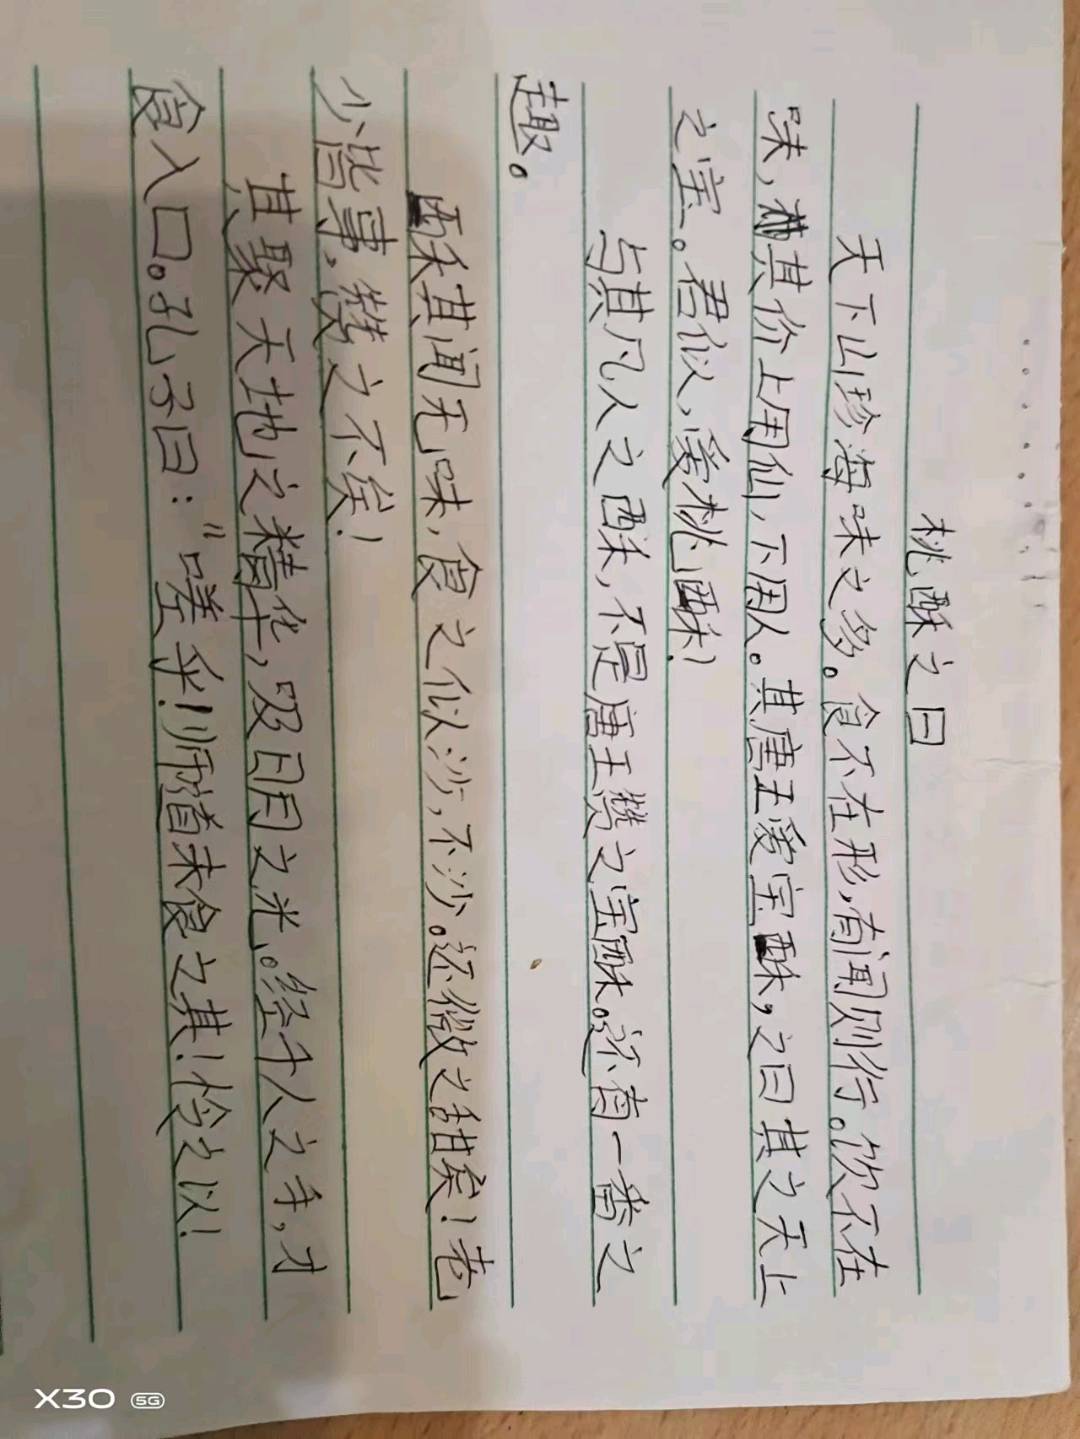 桃酥之曰
天下山珍海味之多。食不在形,有闻则行。饮不在
味,其价上用仙,下用人。其唐王爱宝酥,之曰其之天上
之宝。君似,爱桃酥!
与其凡人之酥,不是唐王赞之宝酥。还有一番之
趣。
酥其闻无味,食之似沙,不沙。还微之甜矣!老
少谐事,赞之不矣!
其聚天地之精华,吸日月之光。经千人之手,才
食入口。孔子曰:“嗟乎!师道未食之其!怜之以!
X30 5G